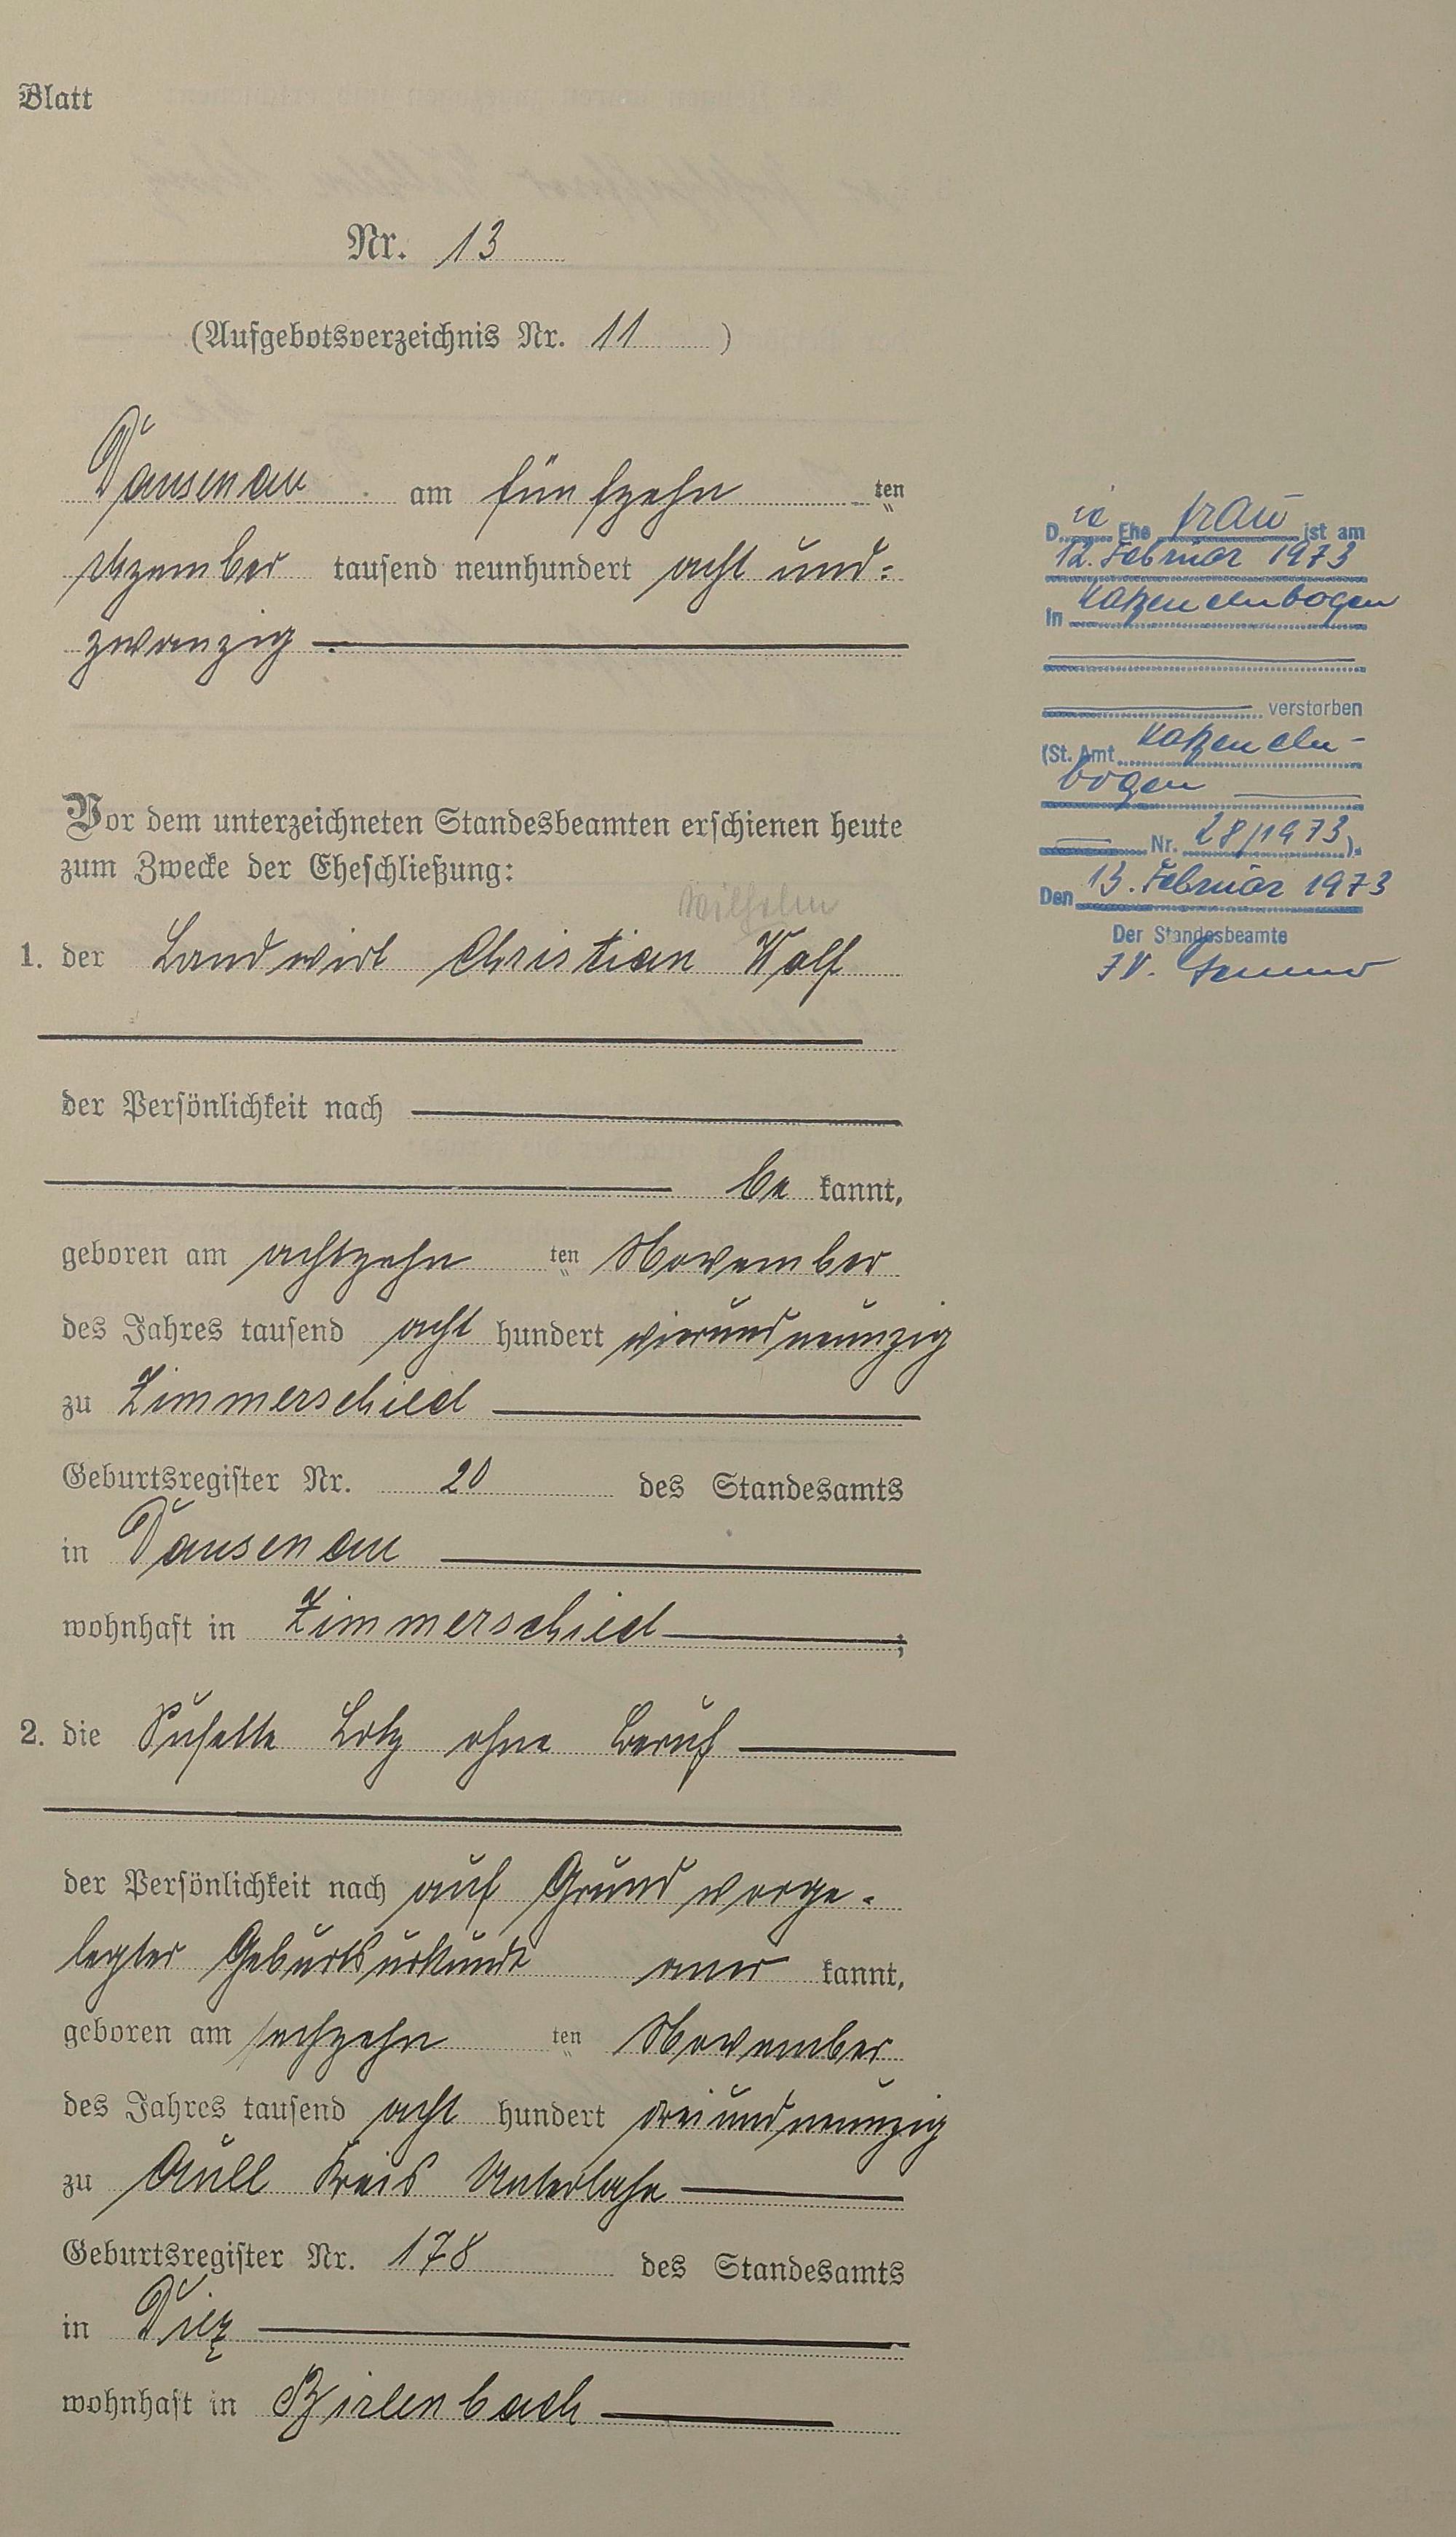 Blatt
Nr. 13
(Aufgebotsverzeichnis Nr. 11 )
Dausenau am fünfzehn ten
Dezember tausend neunhundert acht und-
zwanzig
Vor dem unterzeichneten Standesbeamten erschienen heute
zum Zwecke der Eheschließung:
Wilhelm
1. der Landwirt Christian Wolf
der Persönlichkeit nach
be kannt,
geboren am achtzehn ten November
des Jahres tausend acht hundert vierundneunzig
zu Zimmerschied
Geburtsregister Nr. 20 des Standesamts
in Dausenau
wohnhaft in Zimmerschied ;
2. die Susette Lotz ohne Beruf
der Persönlichkeit nach auf Grund vorge-
legter Geburtsurkunde aner kannt,
geboren am sechzehn ten November
des Jahres tausend acht hundert dreiundneunzig
zu Aull Kreis Unterlahn
Geburtsregister Nr. 178 des Standesamts
in Diez
wohnhaft in Birlenbach
Die Ehe frau ist am
12. Februar 1973
in Katzenelnbogen
verstorben
(St. Amt Katzeneln-
bogen
Nr. 28/1973).
Den 13. Februar 1973
Der Standesbeamte
I.V.